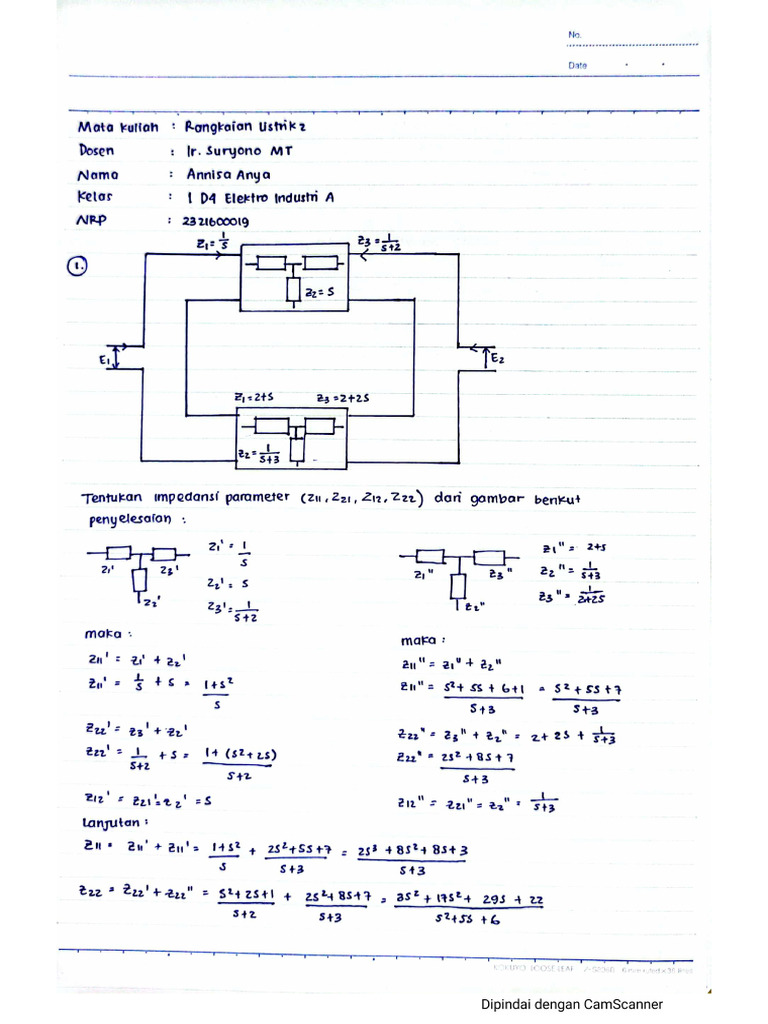 No.
Date
Mata kuliah : Rangkaian Listrik 2
Dosen : Ir. Suryono MT
Nama : Annisa Anya
Kelas : 1 D4 Elektro Industri A
NRP : 2321600019
1.
Z1 = 1/s
Z3 = 1/(s+2)
Z2 = s
E1
E2
Z1 = 2+s
Z3 = 2+2s
Z2 = 1/(s+3)
Tentukan impedansi parameter (Z11, Z21, Z12, Z22) dari gambar berikut
penyelesaian :
Z1' Z3' Z2'
Z1' = 1/s
Z2' = s
Z3' = 1/(s+2)
Z1" Z3" Z2"
Z1" = 2+s
Z2" = 1/(s+3)
Z3" = 1/(2+2s)
maka :
Z11' = Z1' + Z2'
Z11' = 1/s + s = (1+s²)/s
Z22' = Z3' + Z2'
Z22' = 1/(s+2) + s = (1+(s²+2s))/(s+2)
Z12' = Z21' = Z2' = s
maka :
Z11" = Z1" + Z2"
Z11" = (s²+5s+6+1)/(s+3) = (s²+5s+7)/(s+3)
Z22" = Z3" + Z2" = 2+2s + 1/(s+3)
Z22" = (2s²+8s+7)/(s+3)
Z12" = Z21" = Z2" = 1/(s+3)
Lanjutan :
Z11 = Z11' + Z11' = (1+s²)/s + (2s²+5s+7)/(s+3) = (2s³+8s²+8s+3)/(s+3)
Z22 = Z22' + Z22" = (s²+2s+1)/(s+2) + (2s²+8s+7)/(s+3) = (3s²+17s²+29s+22)/(s²+5s+6)
Dipindai dengan CamScanner